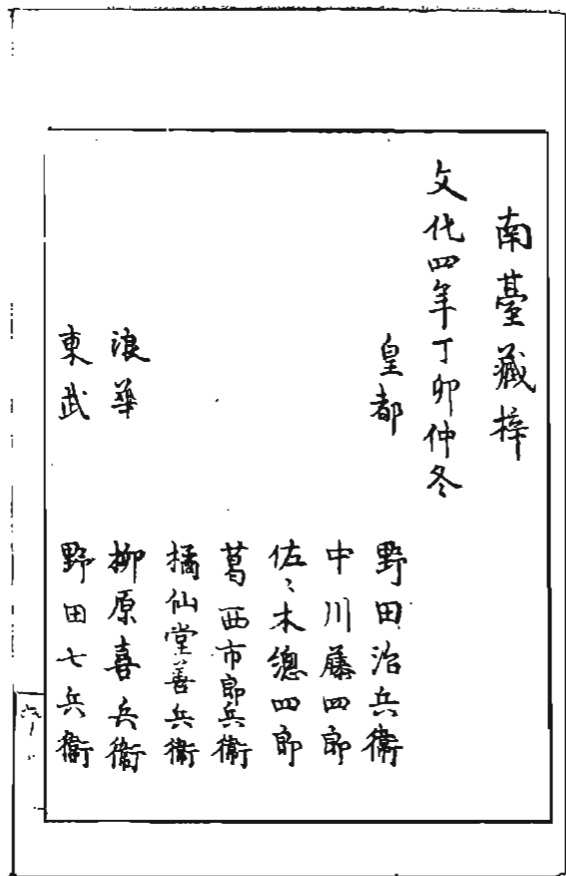 南臺藏梓
文化四年丁卯仲冬
皇都 野田治兵衞
中川藤四郎
佐々木總四郎
葛西市郎兵衞
橘仙堂善兵衞
浪華 柳原喜兵衞
東武 野田七兵衞